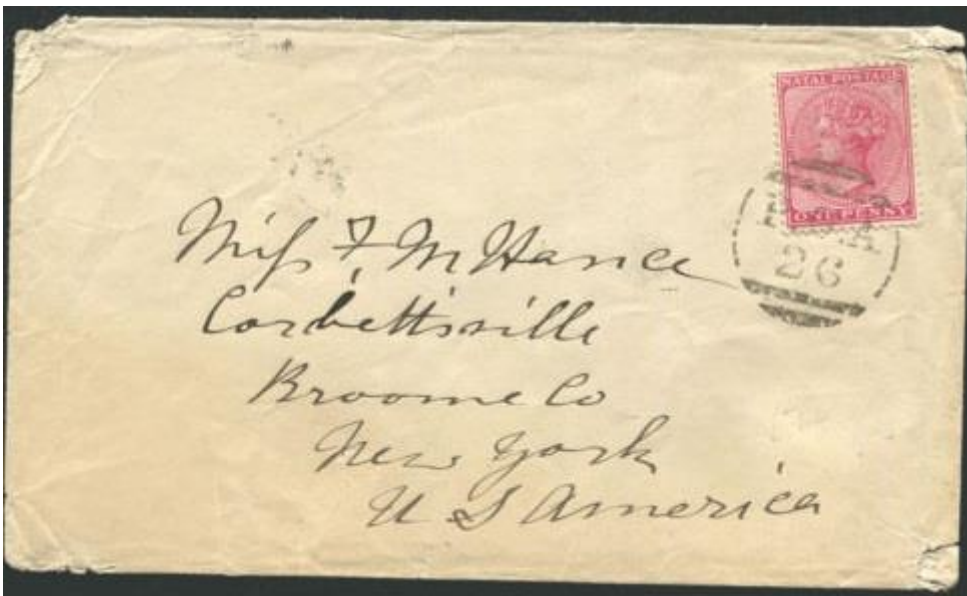 NATAL POSTAGE
ONE PENNY
26
Miss F. M. Hance
Corbettsville
Broome Co
New York
U S America